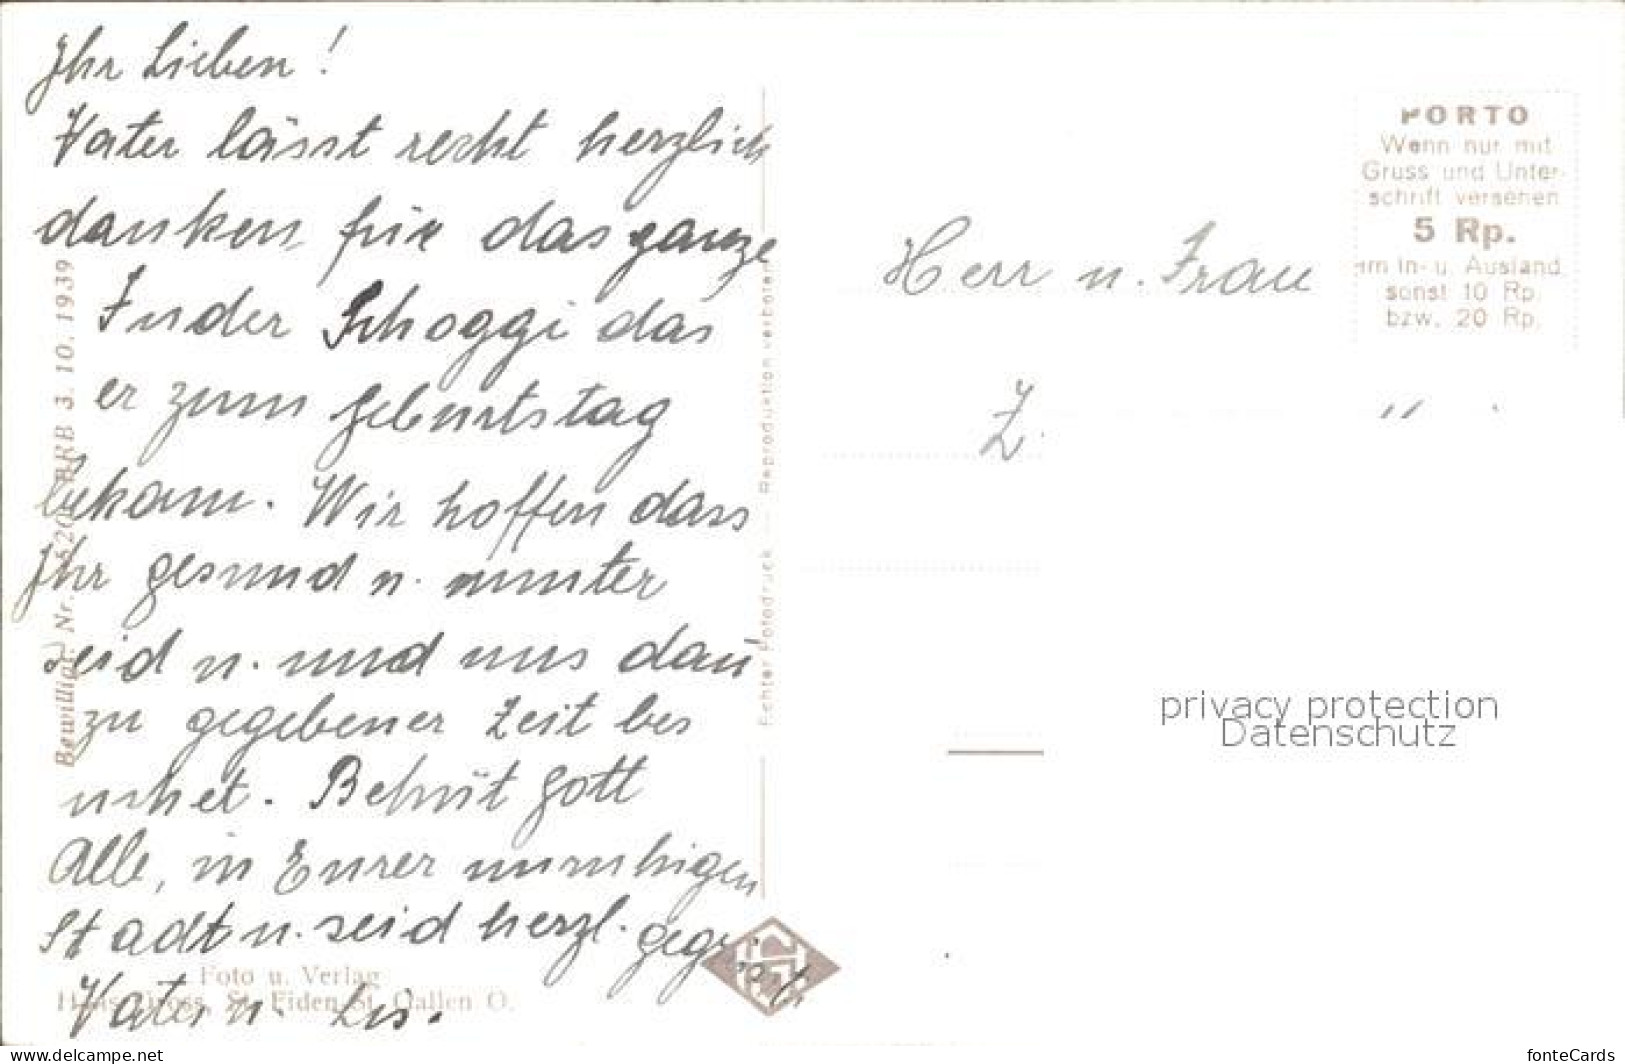 Ihr Lieben!
Vater lässt recht herzlich
danken, für das ganze
Fuder Schoggi das
er zum Geburtstag
bekam. Wir hoffen dass
Ihr gesund u. munter
seid u. und uns dan
zu gegebener Zeit bes
uchet. Behüt Gott
Alle, in Eurer unruhigen
Stadt u. seid herzl.
Vater u. Lis.
Bewilligt. Nr. BRB 3. 10. 1939
Foto u. Verlag
Hans Gross, St. Fiden-St. Gallen O.
Echter Fotodruck — Reproduktion verboten
Herr u. Frau
Z.
PORTO
Wenn nur mit
Gruss und Unter-
schrift versehen
5 Rp.
im In- u. Ausland
sonst 10 Rp.
bzw. 20 Rp.
privacy protection
Datenschutz
www.delcampe.net
fonteCards